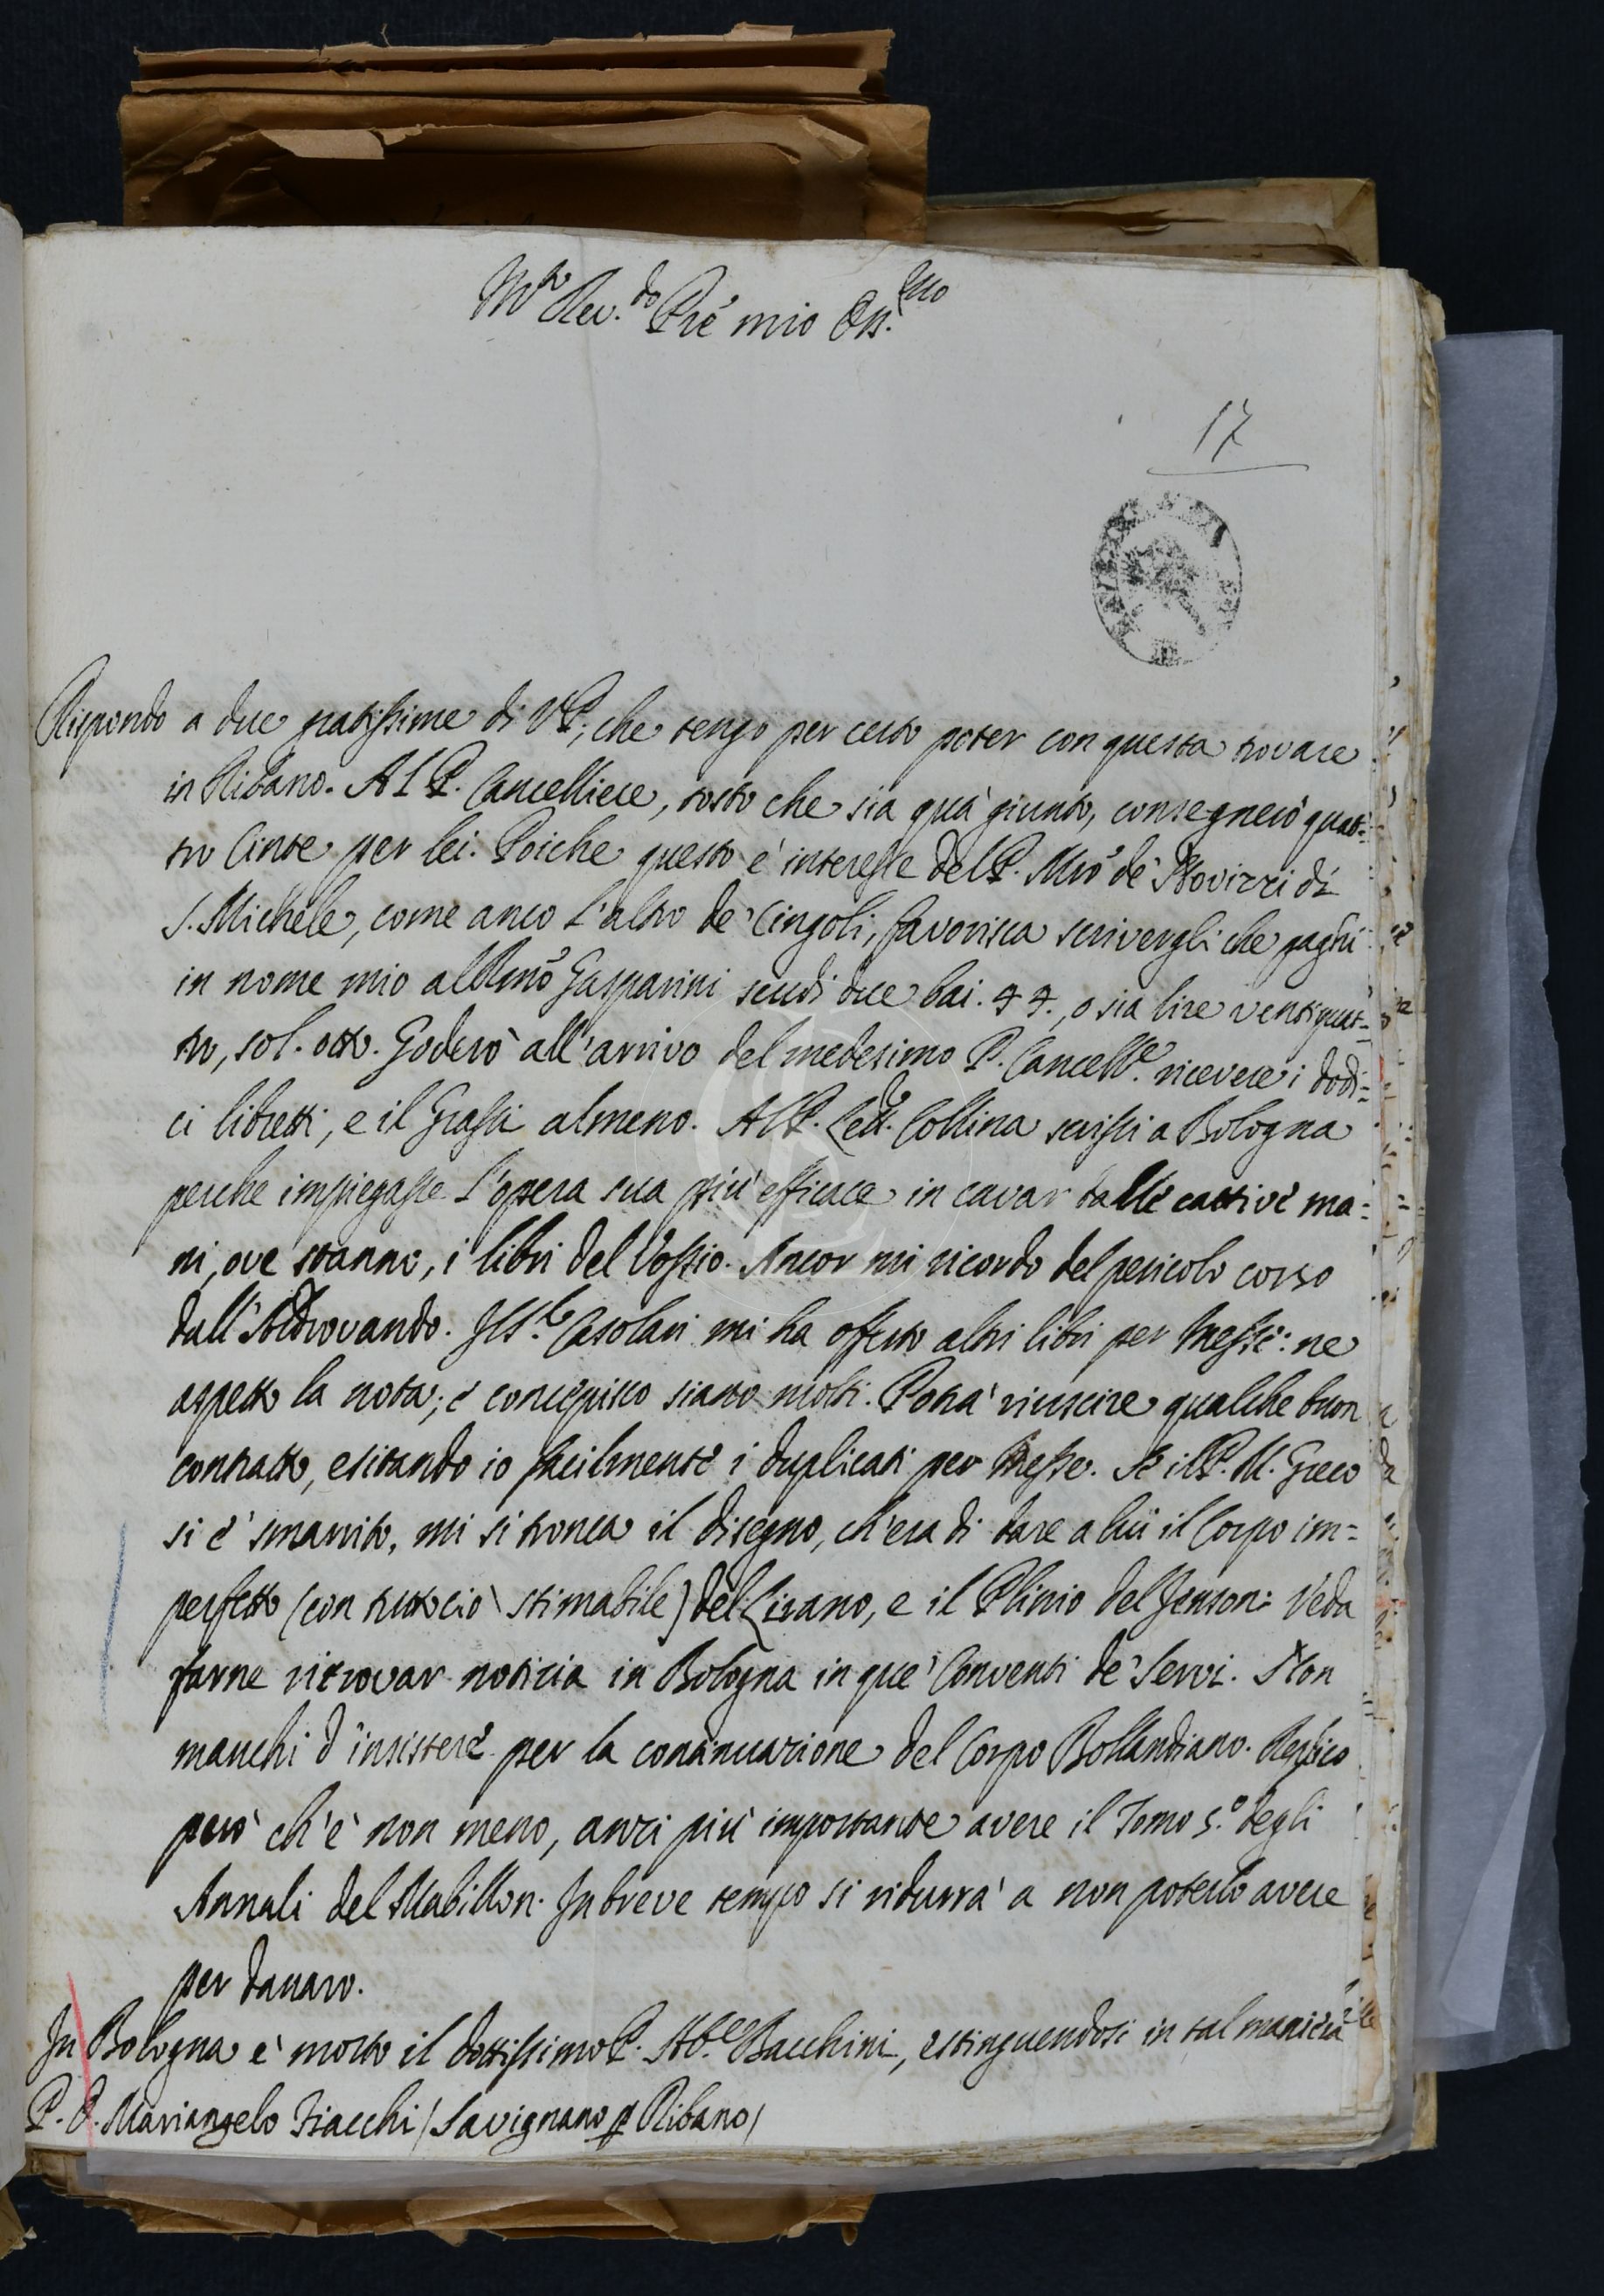 M.to Rev.do Pre mio Oss.mo
17
Rispondo a due gratissime di V.P., che tengo per certo poter con questa trovare
in Ribano. Al P. Cancelliere, tosto che sia quà giunto, consegnerò quat=
tro Cinte per lei. Poiche questo è interesse del P. Mro de' Novizzi di
S. Michele, come anco l'altro de' Cingoli, favorisca scrivergli che paghi
in nome mio al Rmo Gasparini scudi due bai. 44., o sia lire ventiquat=
tro, sol. otto. Goderò all'arrivo del medesimo P. Cancell.e ricevere i dodi=
ci libretti, e il Grassi almeno. Al P. Lett.e Collina scrissi a Bologna
perche impiegasse l'opera sua più efficace in cavar dalle cattive ma=
ni, ove stanno, i libri del Vossio. Ancor mi ricordo del pericolo corso
dall'Aldrovando. Il S.r Casolari mi ha offerto altri libri per Messe: ne
aspetto la nota; e concepisco siano molti. Potrà riuscire qualche buon
contratto, esitando io facilmente i duplicati per Messe. Se il P. M. Greco
si è smarrito, mi si tronca il disegno, ch'era di dare a lui il Corpo im=
perfetto (con tuttociò stimabile) del Lirano, e il Plinio del Jenson: Veda
farne ritrovar notizia in Bologna in que' Conventi de' Servi. Non
manchi d'insistere per la continuazione del Corpo Bollandiano. Replico
però ch'è non meno, anzi più importante avere il Tomo 5.o degli
Annali del Mabillon. In breve tempo si ridurrà a non poterlo avere
per danaro.
In Bologna è morto il dottissimo P. Ab.e Bacchini, estinguendosi in tal maniera
P. D. Mariangelo Fiacchi (Savignano p Ribano)